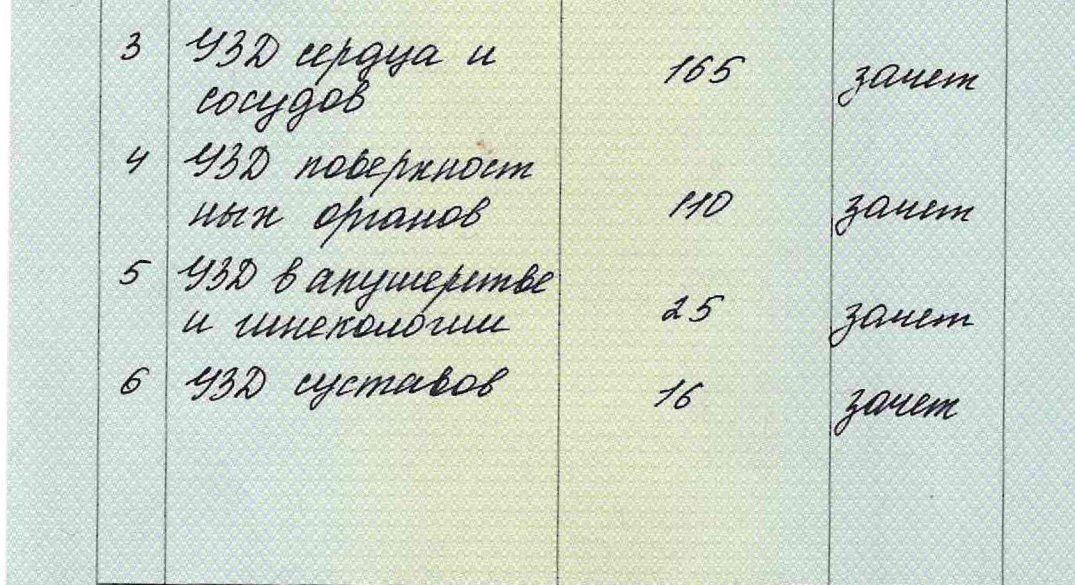 3 УЗД сердца и 165 зачет
сосудов
4 УЗД поверхност
ных органов 110 зачет
5 УЗД в акушерстве
и гинекологии 25 зачет
6 УЗД суставов 16 зачет